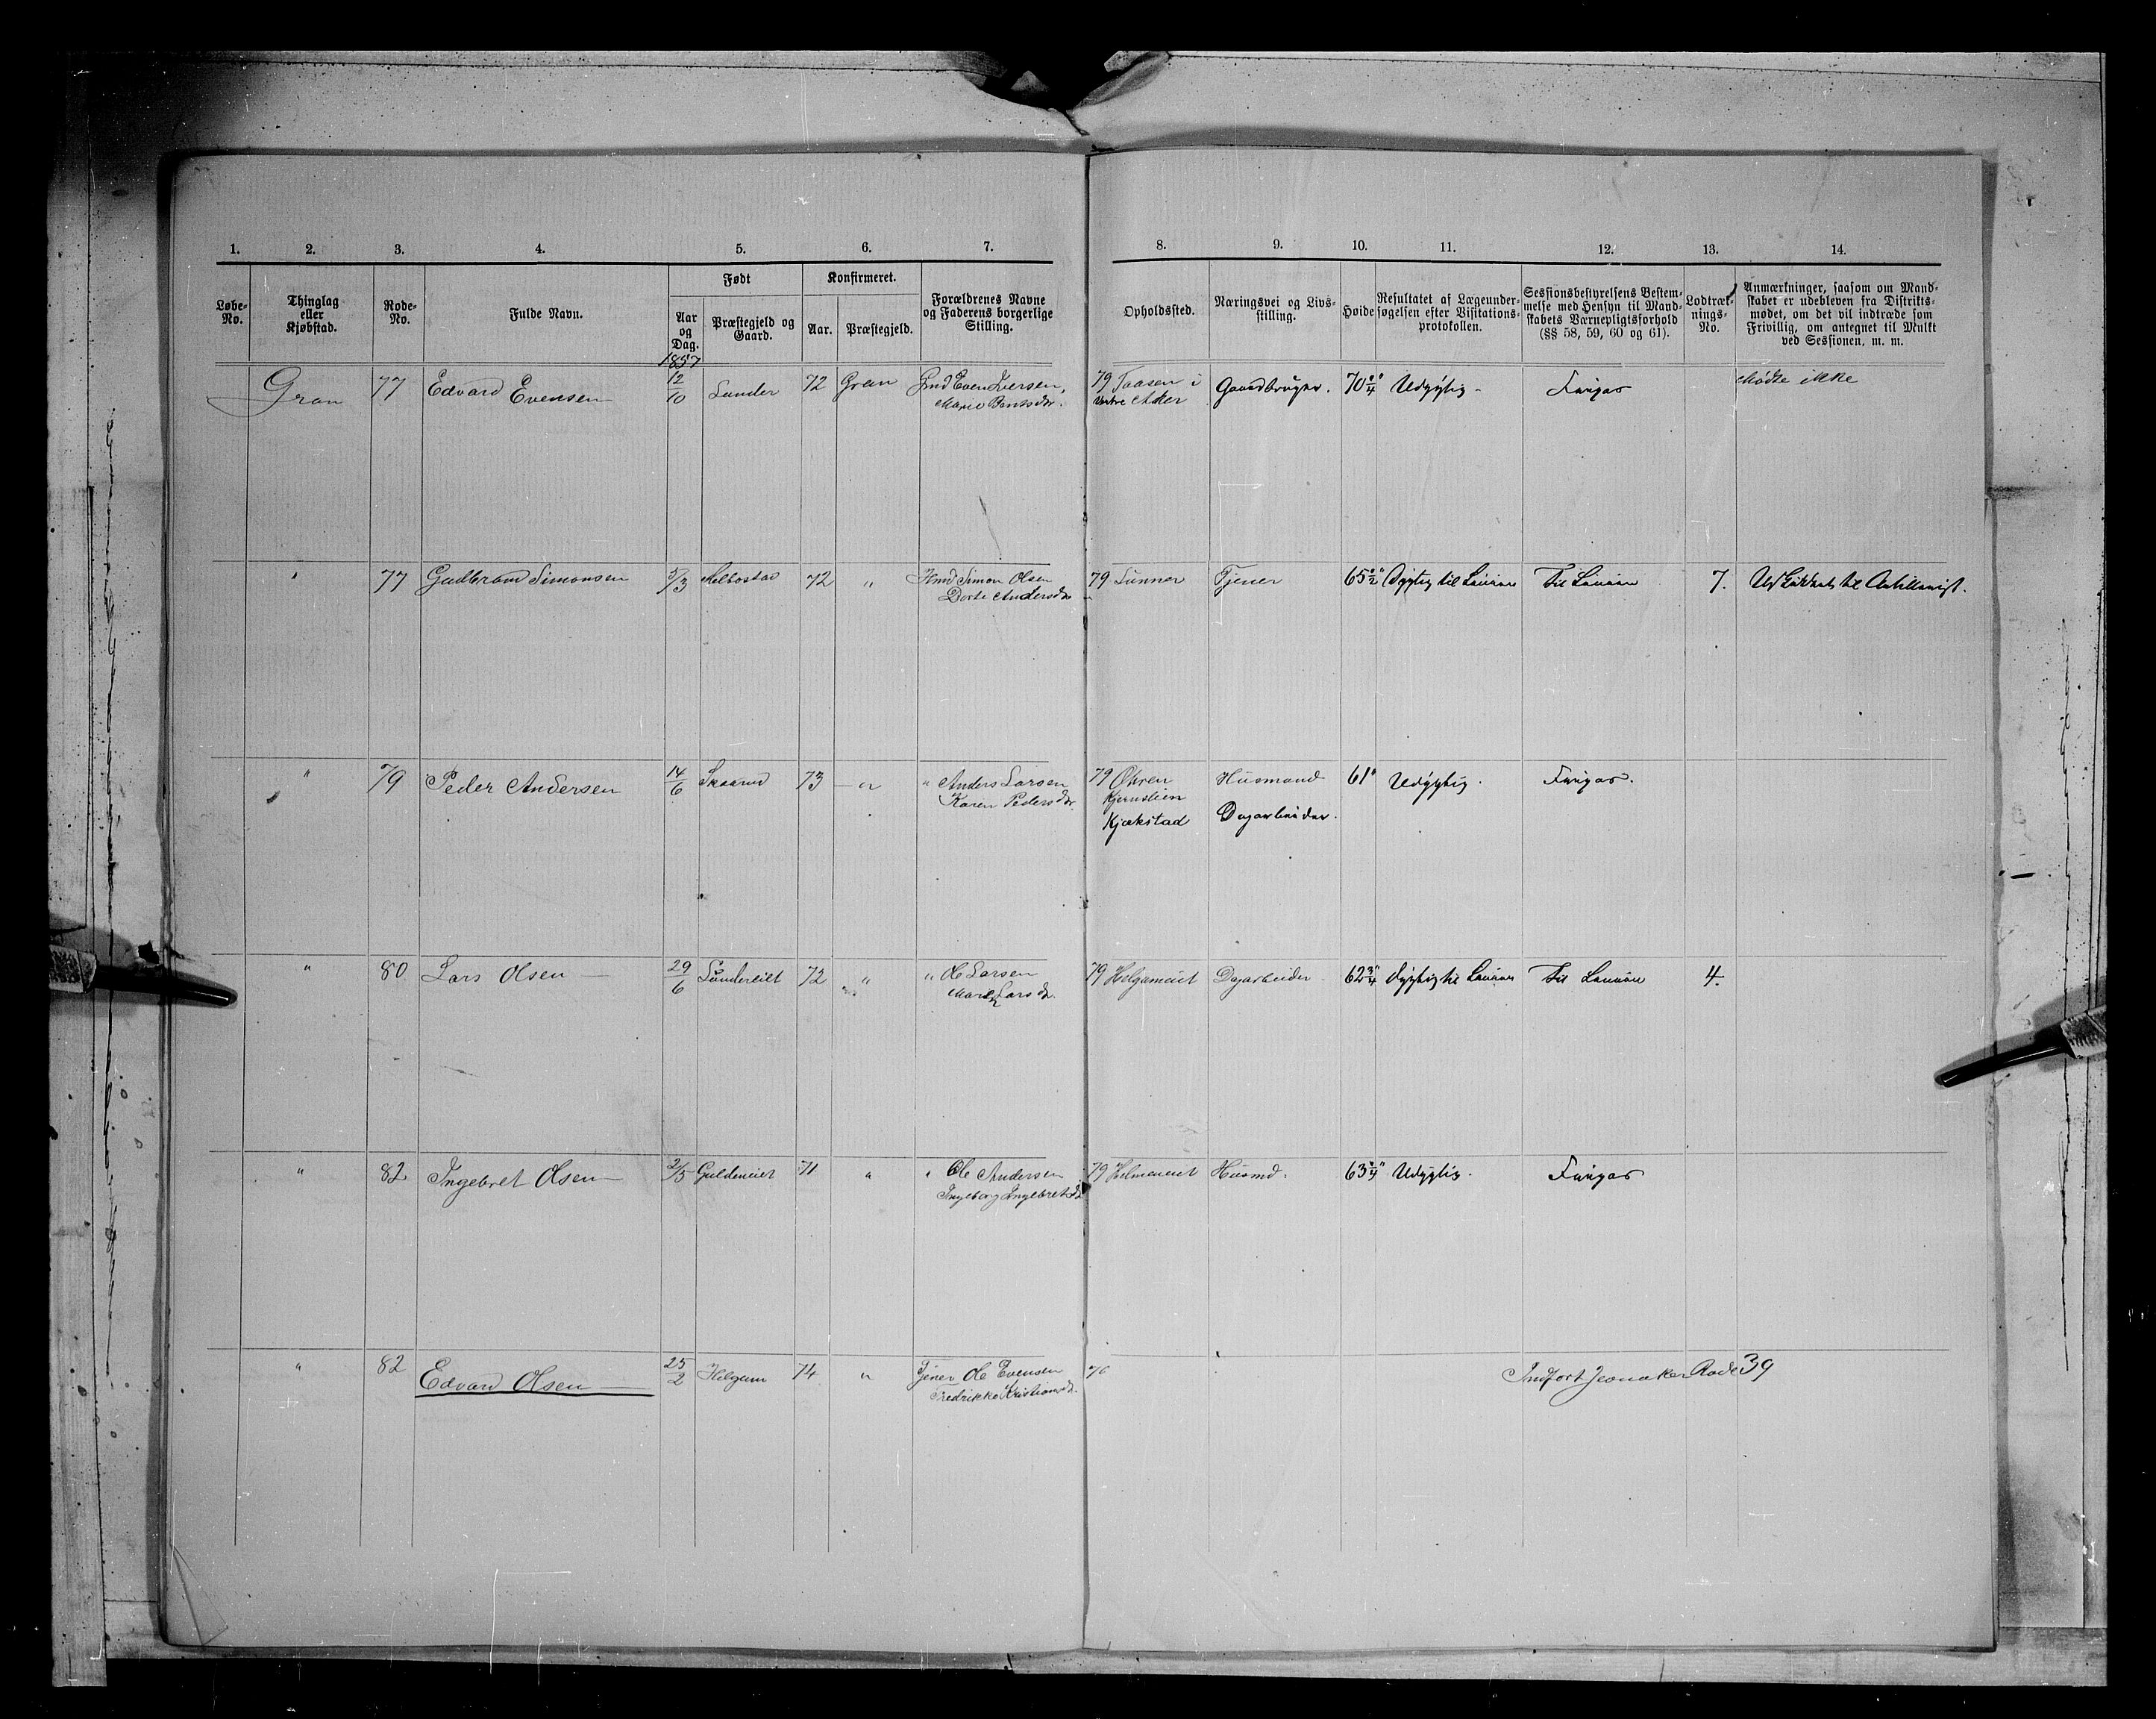 1. 2. 3. 4. 5. 6. 7. 8. 9. 10. 11. 12. 13. 14.
Løbe-No.
Thinglag eller Kjøbstad.
Rode-No.
Fulde Navn.
Født
Aar og Dag.
Præstegjeld og Gaard.
Konfirmeret.
Aar.
Præstegjeld.
Forældrenes Navne og Faderens borgerlige Stilling.
Opholdssted.
Næringsvei og Livsstilling.
Høide
Resultatet af Lægeundersøgelsen efter Visitationsprotokollen.
Sessionsbestyrelsens Bestemmelse med Hensyn til Mandskabets Værnepligtsforhold (§§ 58, 59, 60 og 61).
Lodtræknings-No.
Anmærkninger, saasom om Mandskabet er udebleven fra Distriktsmødet, om det vil indtræde som Frivillig, om antegnet til Mulkt ved Sessionen, m. m.
1857
Gran 77 Edvard Evensen 12/10 Lunder 72 Gran Gmd Even Iversen, 79 Taasen i Gaardbruger. 70 2/4" Udygtig Mødte ikke
Marie Bentsdr. Vestre Aker
" 77 Gudbrand Simonsen 5/3 Molbostad 72 " Hmd Simon Olsen 79 Lunner Tjener 65 2/2" Dygtig til Linien Til Linien 7.
Dorte Andersdr
" 79 Peder Andersen 14/6 Skaarud 73 " " Anders Larsen 79 Øhren Husmand 61" Udygtig.
Karen Pedersdr. Kjernslien
Kjækstad Dagarbeider.
" 80 Lars Olsen 29/6 72 " " Ole Larsen 79 Helgameiet Dagarbeider 62 3/4" Dygtig til Linien Til Linien 4.
Larsdr.
" 82 Ingebret Olsen 2/5 Guldeneiet 71 " " Ole Andersen 79 Husmd. 63 3/4" Udygtig.
Ingeborg Ingebretsdr
" 82 Edvard Olsen 25/2 Helgum 74 " Tjener Ole Evensen 76 Indført Jevnaker Rode 39
Fredrikke Kristiansdr.